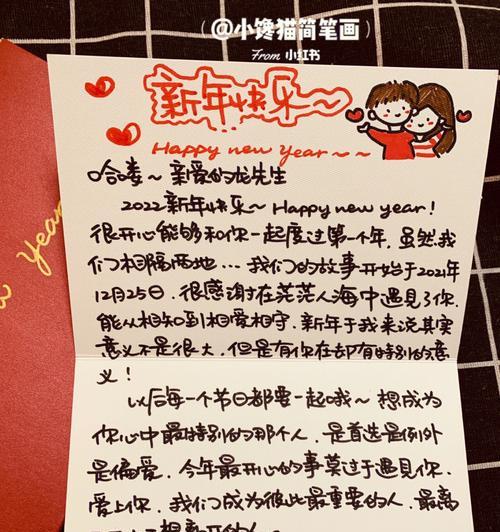 @小馋猫简笔画
From 小红书
新年快乐～
Happy new year～～
哈喽～亲爱的龙先生
2022新年快乐～Happy new year!
很开心能够和你一起度过第一个年，虽然我
们相隔两地...我们的故事开始于2021年
12月25日，很感谢在茫茫人海中遇見了你，
能从相知到相爱相守，新年于我来说其实
意义不是很大，但是有你在却有特别的意
义！
以后每一个节日都要一起哦～想成为
你心中最特别的那个人，是首选是例外
是偏爱，今年最开心的事莫过于遇見你，
爱上你，我们成为彼此最重要的人，最离
Year